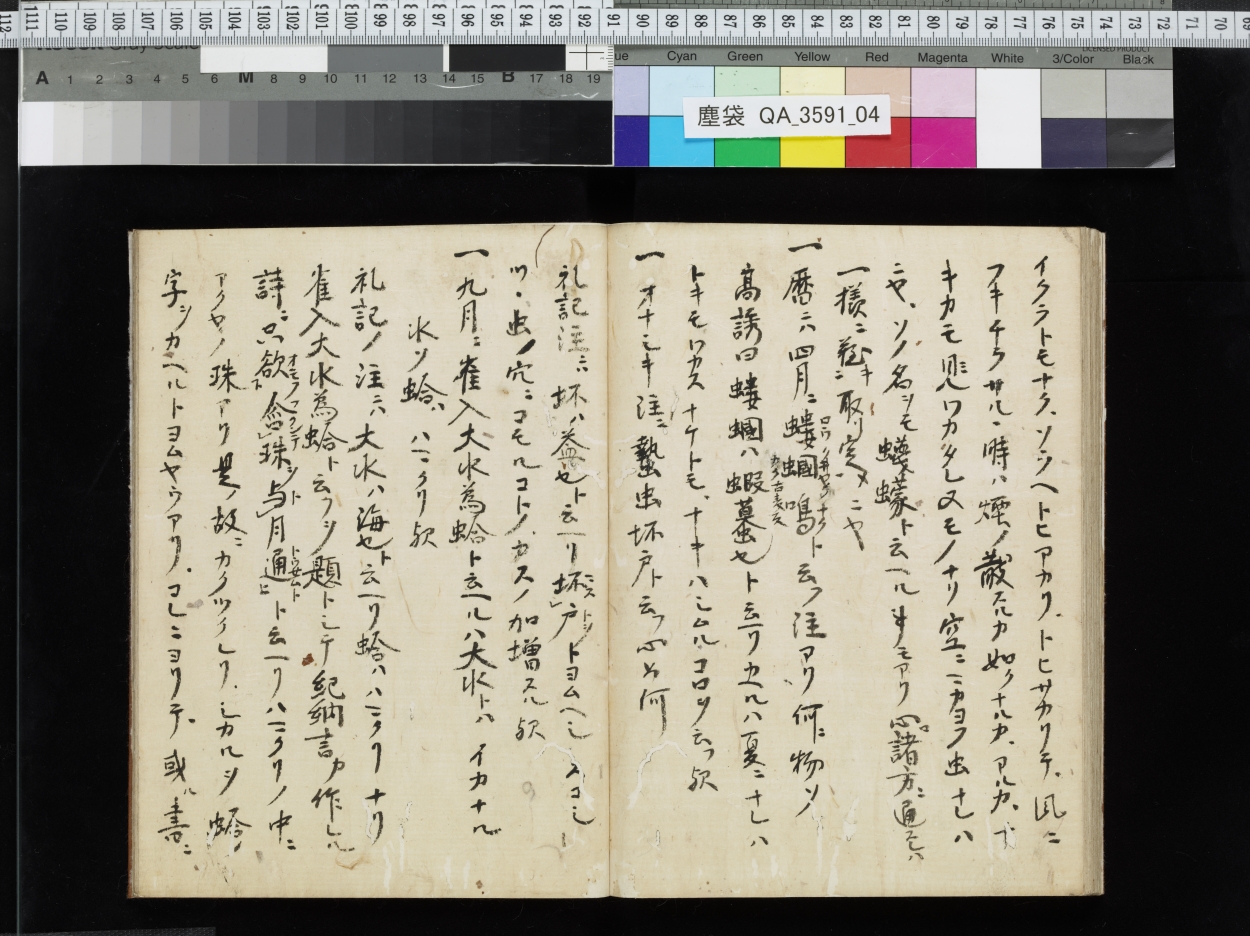 塵袋 QA_3591_04
イクラトモナク、ソラヘトヒアカリ、トヒサカリテ、風ニ
フキチラサルヽ時ハ煙ノ散スルカ如クナルカ、アルカ、ナ
キカモ見ワカタレヌモノナリ空ニニカヨフ虫ナレハ
ニヤ、ソノ名ヲモ蠛蠓ト云ヘル事モアリ心諸方ニ通スレハ
一様ニ難キ取リ定メニヤ
一 暦ニハ四月ニ螻蟈鳴ト云フ注アリ何ニ物ソ
高誘曰螻蟈ハ蝦蟇也ト云ヘリカヘルハ夏ニナレハ
トキモワカスナケトモ、ナキハシムルコロヲ云フ歟
一 オナシキ注ニ蟄虫坏戸ト云フ心如何
礼記注ニハ坏ハ益也ト云ヘリ坏戸トヨムヘシスコシ
ツヽ虫ノ穴ニコモルコトノカスノ加増スル歟
一 九月ニ雀入大水為蛤ト云ヘルハ大水トハイカナル
水ソ蛤ハハマクリ歟
礼記ノ注ニハ大水ハ海也ト云ヘリ蛤ハハマクリナリ
雀入大水為蛤ト云フヲ題トシテ紀納言カ作レル
詩ニハ只欲含珠与月通ト云ヘリハマクリノ中ニ
アクヤノ珠アリ是ノ故ニカクツクレリ、シカルヲ蛤ノ
字ヲカヘルトヨムヤウアリ、コレニヨリテ、或ハ書ニ
A 1 2 3 4 5 6 M 8 9 10 11 12 13 14 15 B 17 18 19
Cyan Green Yellow Red Magenta White 3/Color Black